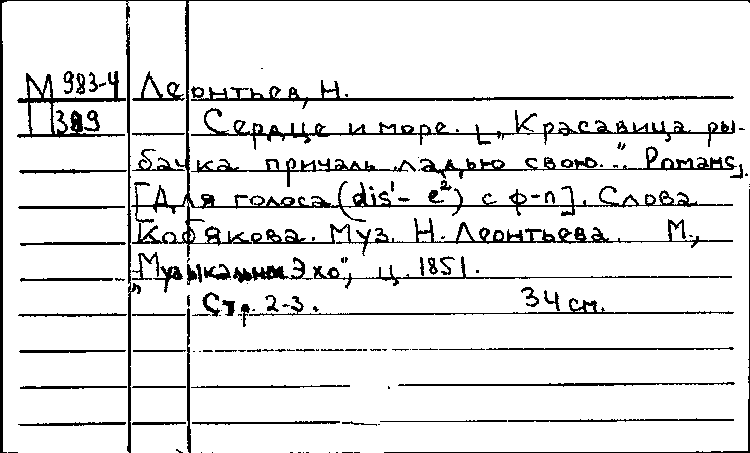 М 983-4 Леонтьев, Н.
П 389 Сердце и море. [„Красавица ры-
бачка причаль ладью свою..." Романс].
[Для голоса (dis¹- e²) с ф-п]. Слова
Кобякова. Муз. Н. Леонтьева. М.,
„Музыкальное Эхо", ц. 1851.
Стр. 2-3. 34 см.